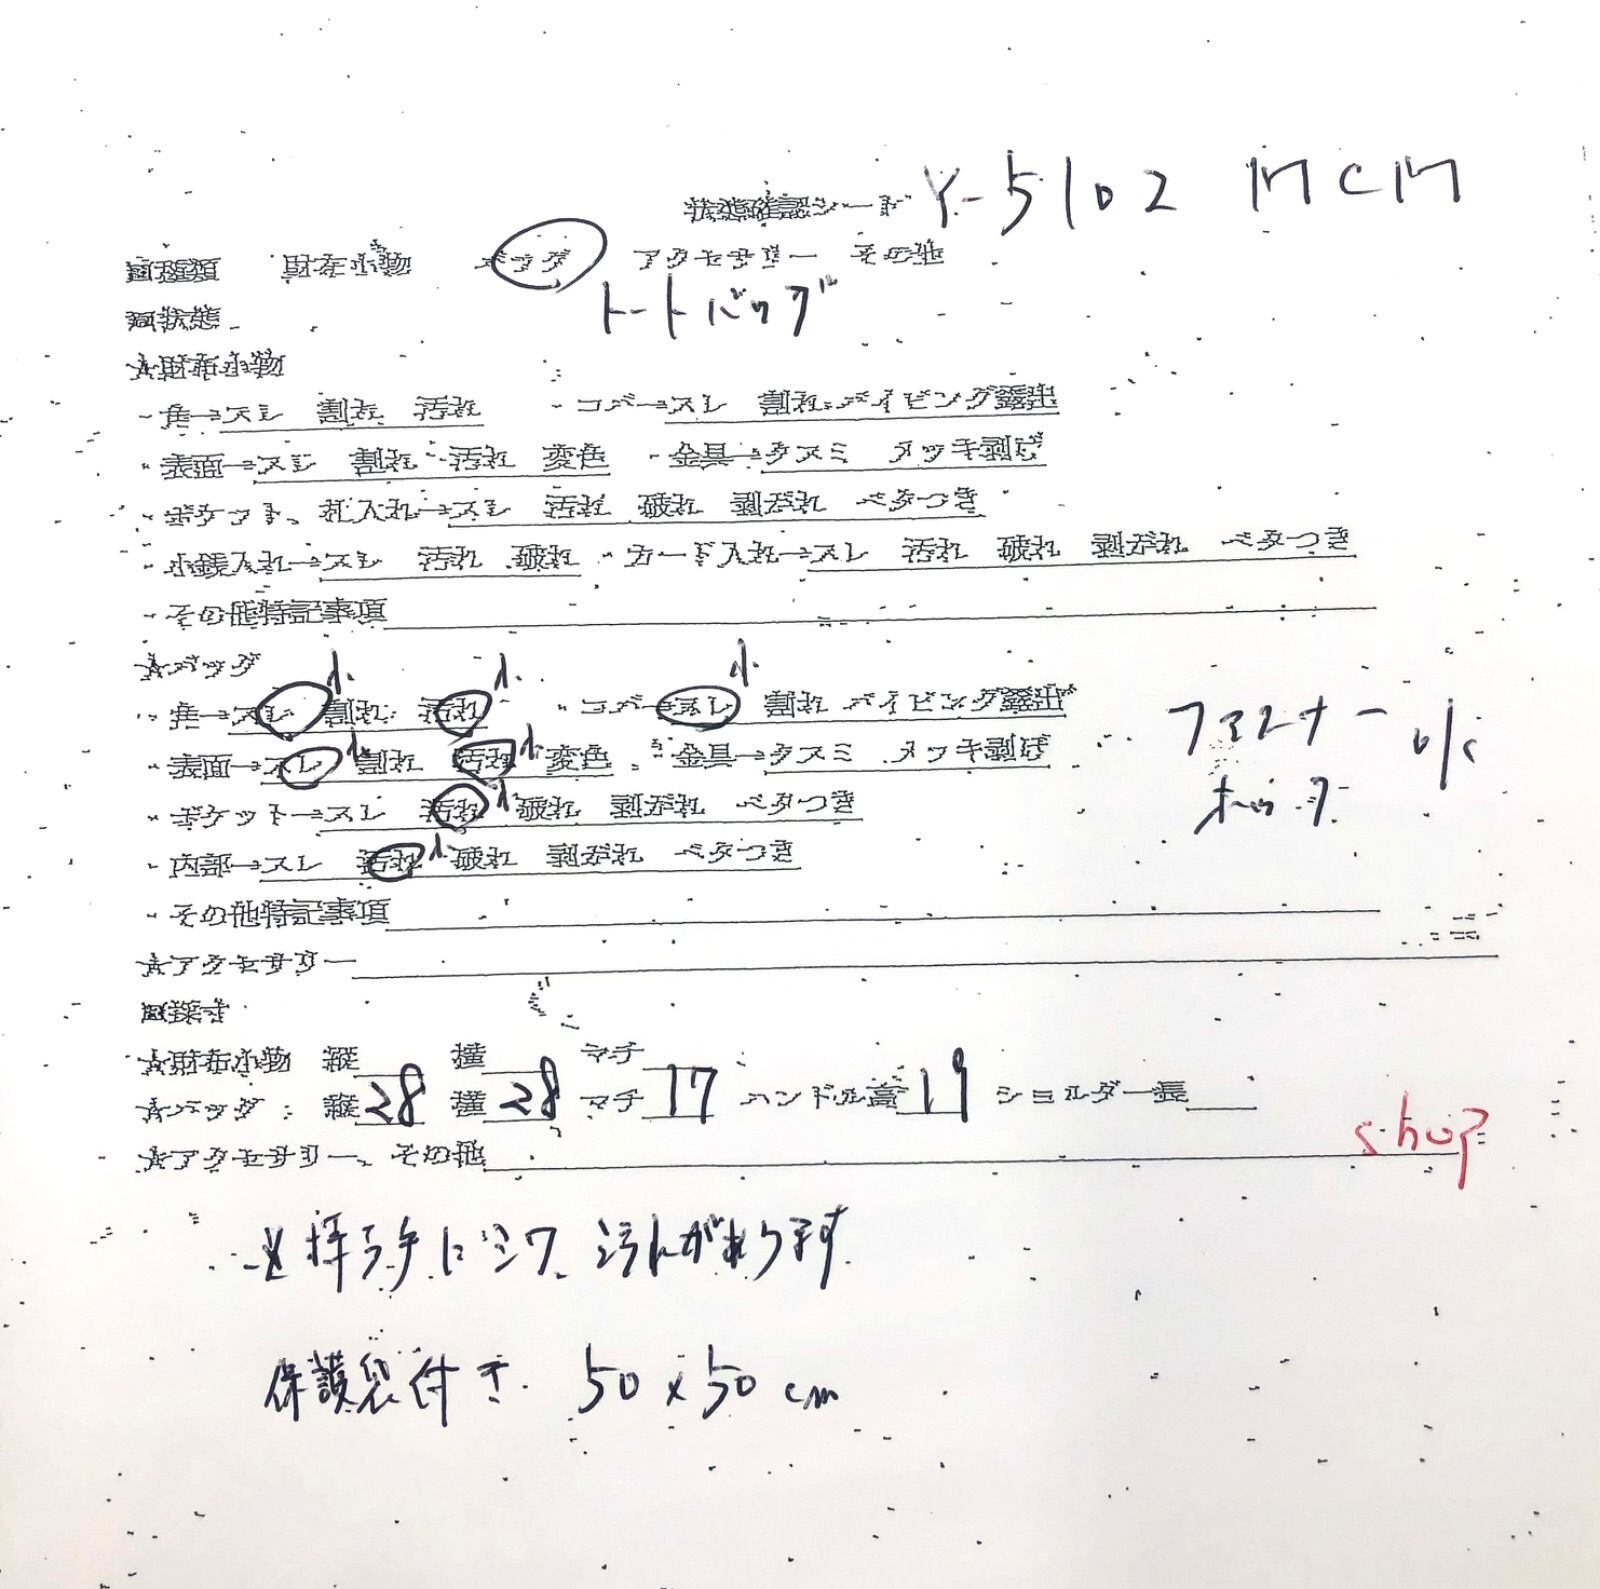 状態確認シート Y-5102 MCM
■種類 財布小物 バッグ アクセサリー その他
トートバッグ
■状態
★財布小物
・角→スレ 割れ 汚れ ・コバ→スレ 割れ パイピング露出
・表面→スレ 割れ 汚れ 変色 ・金具→クスミ メッキ剥げ
・ポケット、札入れ→スレ 汚れ 破れ 剥がれ ベタつき
・小銭入れ→スレ 汚れ 破れ ・カード入れ→スレ 汚れ 破れ 剥がれ ベタつき
・その他特記事項
★バッグ
・角→スレ 小 割れ 汚れ 小 ・コバ→スレ 小 割れ パイピング露出
・表面→スレ 小 割れ 汚れ 小 変色 ・金具→クスミ メッキ剥げ
ファスナー
ホック
・ポケット→スレ 汚れ 小 破れ 剥がれ ベタつき
・内部→スレ 汚れ 小 破れ 剥がれ ベタつき
・その他特記事項
★アクセサリー
■採寸
★財布小物 縦 横 マチ
★バッグ:縦 28 横 28 マチ 17 ハンドル高 19 ショルダー長
shop
★アクセサリー、その他
持ち手にシワ 汚れがあります
保護袋付き 50×50cm